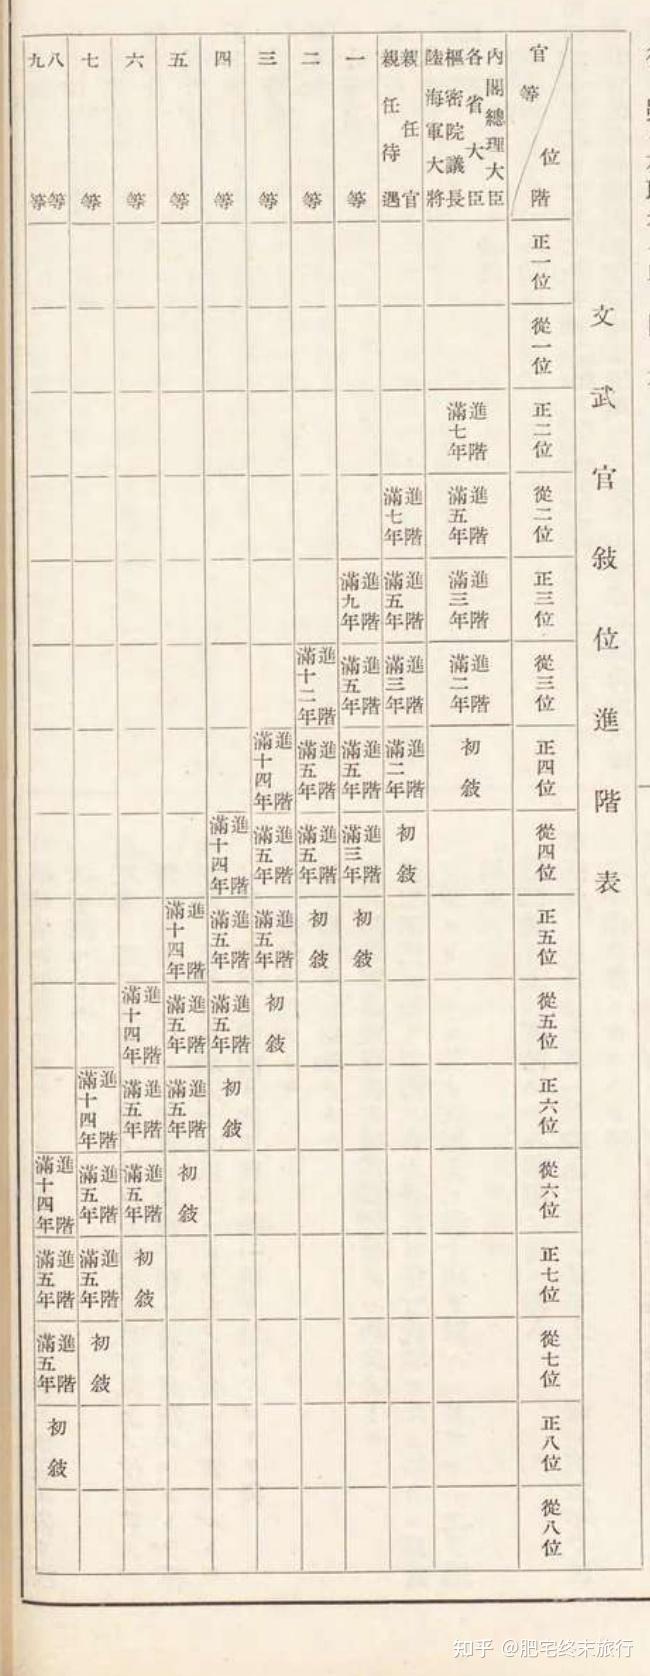 文武官敍位進階表
官等
位階
正一位
從一位
正二位
從二位
正三位
從三位
正四位
從四位
正五位
從五位
正六位
從六位
正七位
從七位
正八位
從八位
內閣總理大臣
各省大臣
樞密院議長
陸海軍大將
進階
滿七年
進階
滿五年
進階
滿三年
進階
滿二年
初敍
親任官
親任待遇
進階
滿七年
進階
滿五年
進階
滿三年
進階
滿二年
初敍
一等
進階
滿九年
進階
滿五年
進階
滿五年
進階
滿三年
初敍
二等
進階
滿十二年
進階
滿五年
進階
滿五年
初敍
三等
進階
滿十四年
進階
滿五年
進階
滿五年
初敍
四等
進階
滿十四年
進階
滿五年
進階
滿五年
初敍
五等
進階
滿十四年
進階
滿五年
進階
滿五年
初敍
六等
進階
滿十四年
進階
滿五年
進階
滿五年
初敍
七等
進階
滿十四年
進階
滿五年
進階
滿五年
初敍
八等
九等
進階
滿十四年
進階
滿五年
進階
滿五年
初敍
知乎 @肥宅终末旅行